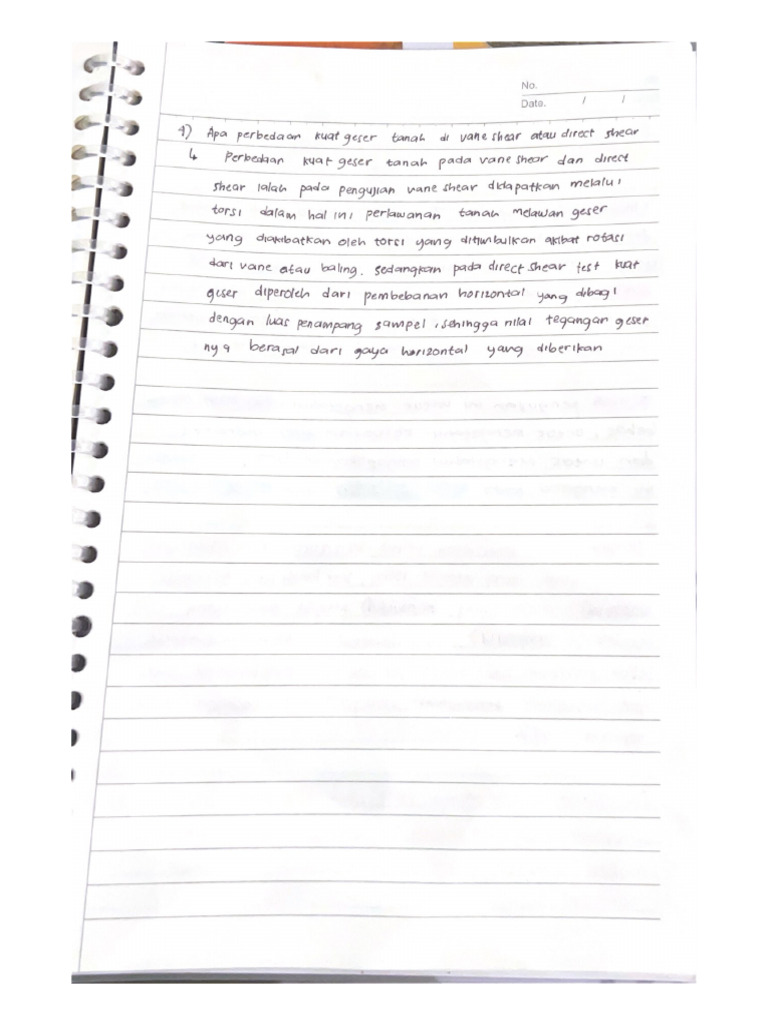 No.
Date. / /
4) Apa perbedaan kuat geser tanah di vane shear atau direct shear
↳ Perbedaan kuat geser tanah pada vane shear dan direct
shear ialah pada pengujian vane shear didapatkan melalui
torsi dalam hal ini perlawanan tanah melawan geser
yang diakibatkan oleh torsi yang ditimbulkan akibat rotasi
dari vane atau baling. sedangkan pada direct shear test kuat
geser diperoleh dari pembebanan horizontal yang dibagi
dengan luas penampang sampel, sehingga nilai tegangan geser
nya berasal dari gaya horizontal yang diberikan